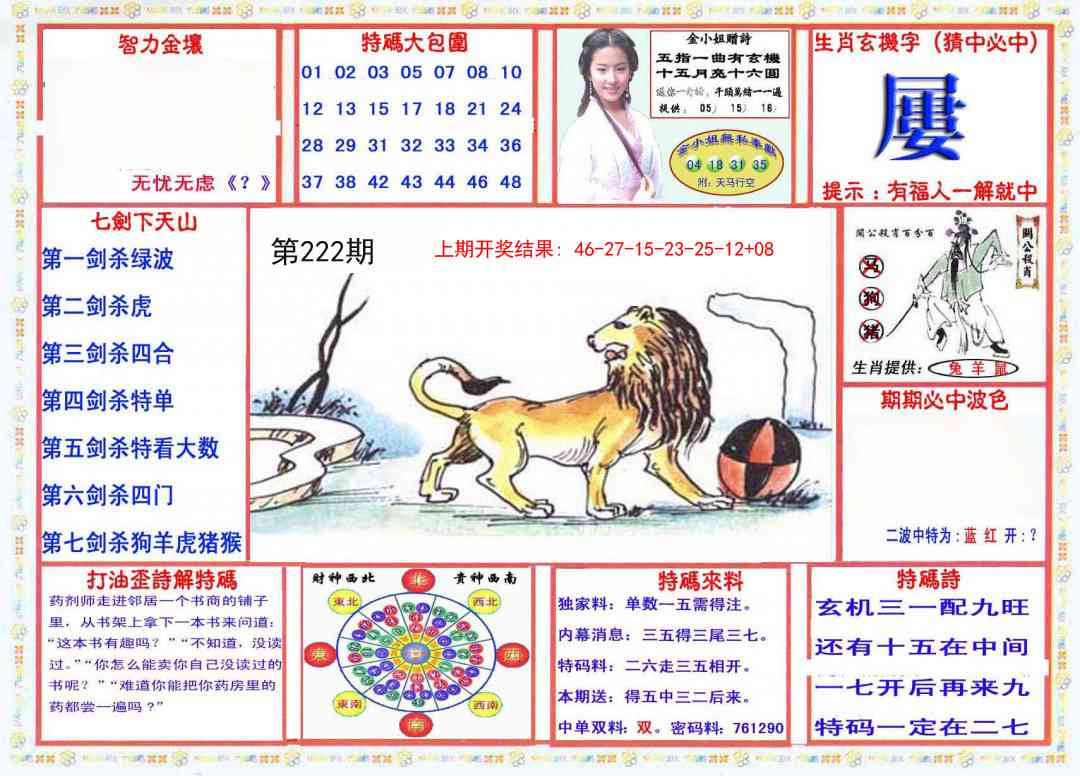 智力金壤
无忧无虑《？》
特碼大包圍
01 02 03 05 07 08 10
12 13 15 17 18 21 24
28 29 31 32 33 34 36
37 38 42 43 44 46 48
金小姐赠詩
五指一曲有玄機
十五月亮十六圓
千頭萬緒一一過
提供： 05） 15） 16）
金小姐無私奉獻
04 18 31 35
附：天马行空
生肖玄機字（猜中必中）
屢
提示：有福人一解就中
七劍下天山
第一剑杀绿波
第二剑杀虎
第三剑杀四合
第四剑杀特单
第五剑杀特看大数
第六剑杀四门
第七剑杀狗羊虎猪猴
第222期
上期开奖结果：46-27-15-23-25-12+08
關公殺肖百分百
關公殺肖
马
狗
猪
生肖提供：兔 羊 鼠
期期必中波色
二波中特为：蓝 红 开：？
打油歪詩解特碼
药剂师走进邻居一个书商的铺子
里，从书架上拿下一本书来问道：
“这本书有趣吗？”“不知道，没读
过。”“你怎么能卖你自己没读过的
书呢？”“难道你能把你药房里的
药都尝一遍吗？”
财神西北
貴神西南
北
東北
西北
東
西
東南
西南
南
特碼來料
独家料：单数一五需得注。
内幕消息：三五得三尾三七。
特码料：二六走三五相开。
本期送：得五中三二后来。
中单双料：双。密码料：761290
特碼詩
玄机三一配九旺
还有十五在中间
一七开后再来九
特码一定在二七